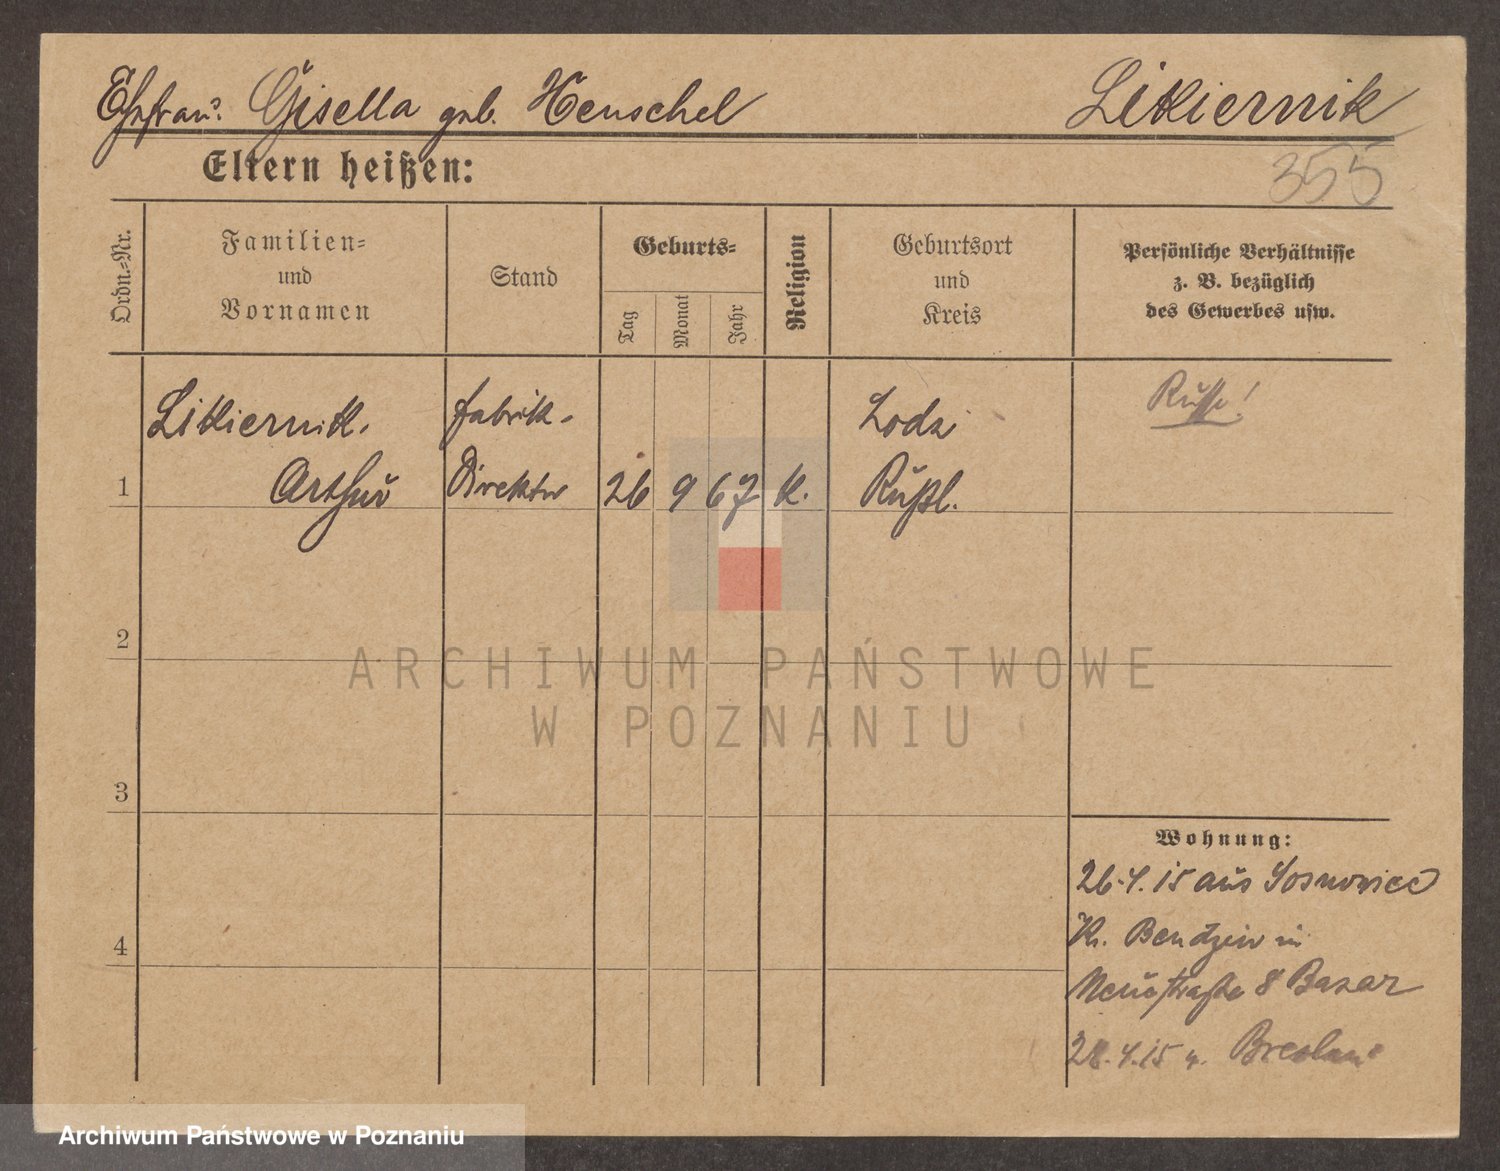 Ehefrau: Gisella geb. Henschel Likiernik
Eltern heißen:
355
Ordn.-Nr.
Familien-
und
Vornamen
Stand
Geburts-
Tag
Monat
Jahr
Religion
Geburtsort
und
Kreis
Persönliche Verhältnisse
z. B. bezüglich
des Gewerbes usw.
Likiernik.
Arthur
Fabrik-
Direktor
1
26 9 67 K.
Lodz
Rußl.
Russe!
2
3
4
Wohnung:
26.4.15 aus Sosnowice
Kr. Bendzin in
Neustraße 8 Bazar
28.4.15 n. Breslau
ARCHIWUM PAŃSTWOWE
W POZNANIU
Archiwum Państwowe w Poznaniu